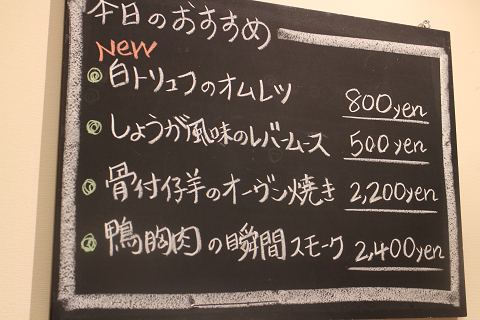 本日のおすすめ
New
白トリュフのオムレツ 800yen
しょうが風味のレバームース 500yen
骨付仔羊のオーヴン焼き 2,200yen
鴨胸肉の瞬間スモーク 2,400yen